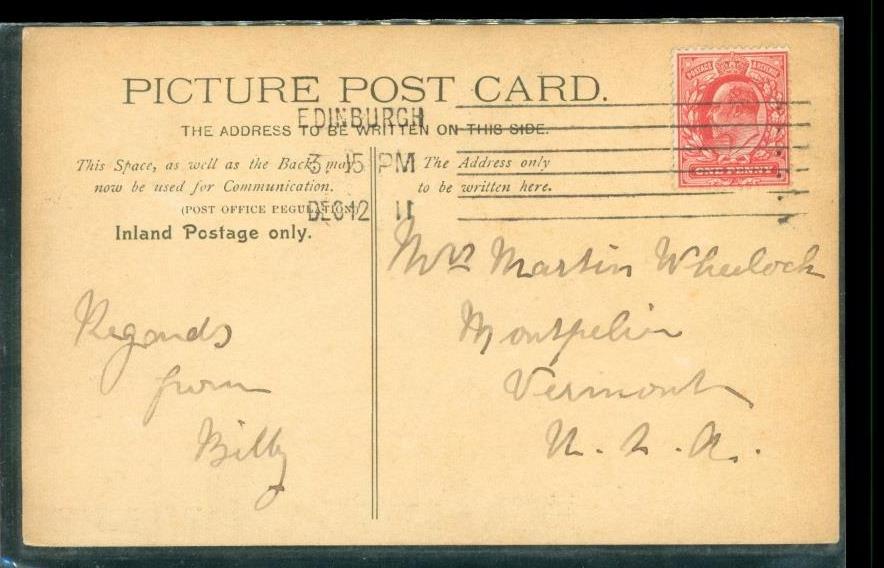 PICTURE POST CARD.
EDINBURGH
THE ADDRESS TO BE WRITTEN ON THIS SIDE.
3. 15 PM
DEC 12 11
POSTAGE & REVENUE
ONE PENNY
This Space, as well as the Back, may
now be used for Communication.
(POST OFFICE REGULATION)
Inland Postage only.
The Address only
to be written here.
Regards
from
Billy
Mrs Martin Wheelock
Montpelier
Vermont
U. S. A.